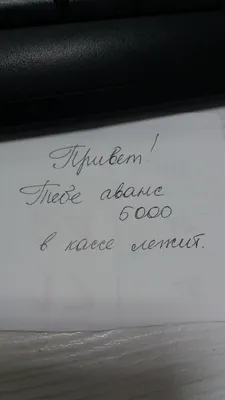 Привет!
Тебе аванс
5000
в кассе лежит.